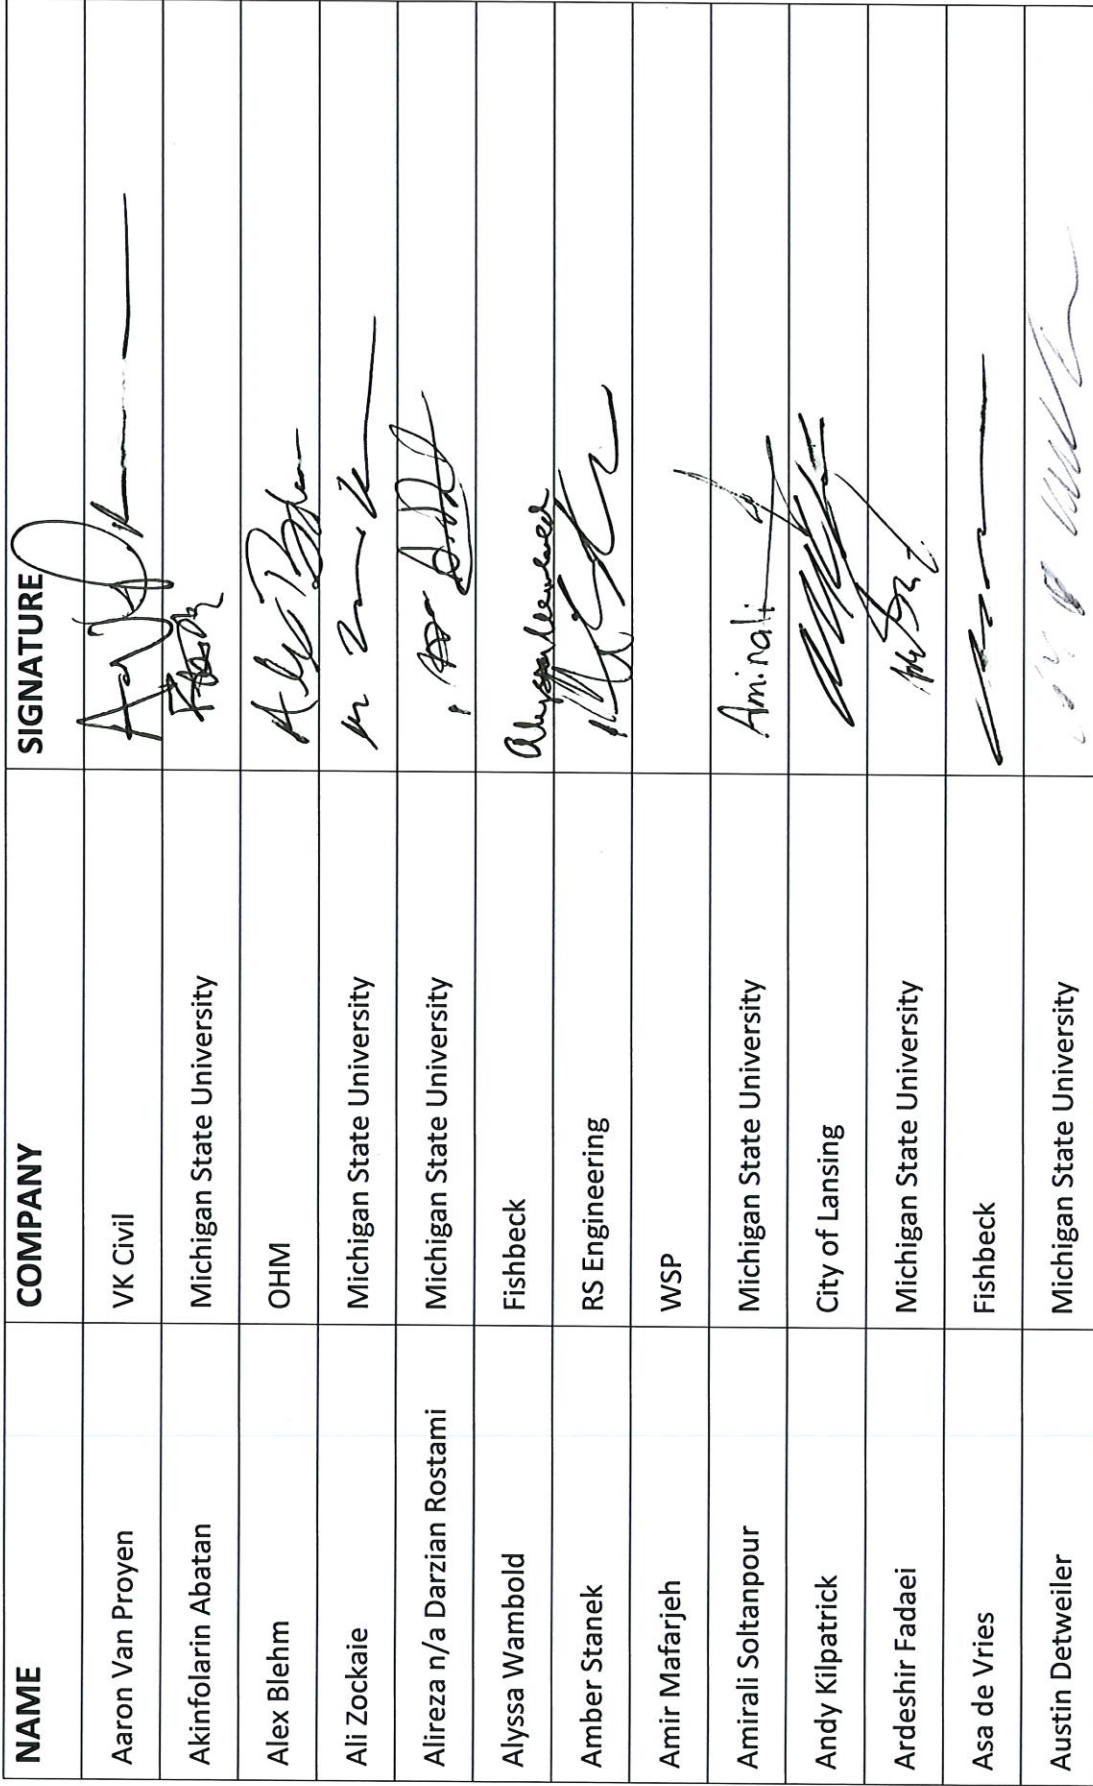 NAME COMPANY SIGNATURE
Aaron Van Proyen VK Civil
Akinfolarin Abatan Michigan State University
Alex Blehm OHM Alex Blehm
Ali Zockaie Michigan State University
Alireza n/a Darzian Rostami Michigan State University
Alyssa Wambold Fishbeck
Amber Stanek RS Engineering
Amir Mafarjeh WSP
Amirali Soltanpour Michigan State University Amirali
Andy Kilpatrick City of Lansing
Ardeshir Fadaei Michigan State University
Asa de Vries Fishbeck
Austin Detweiler Michigan State University